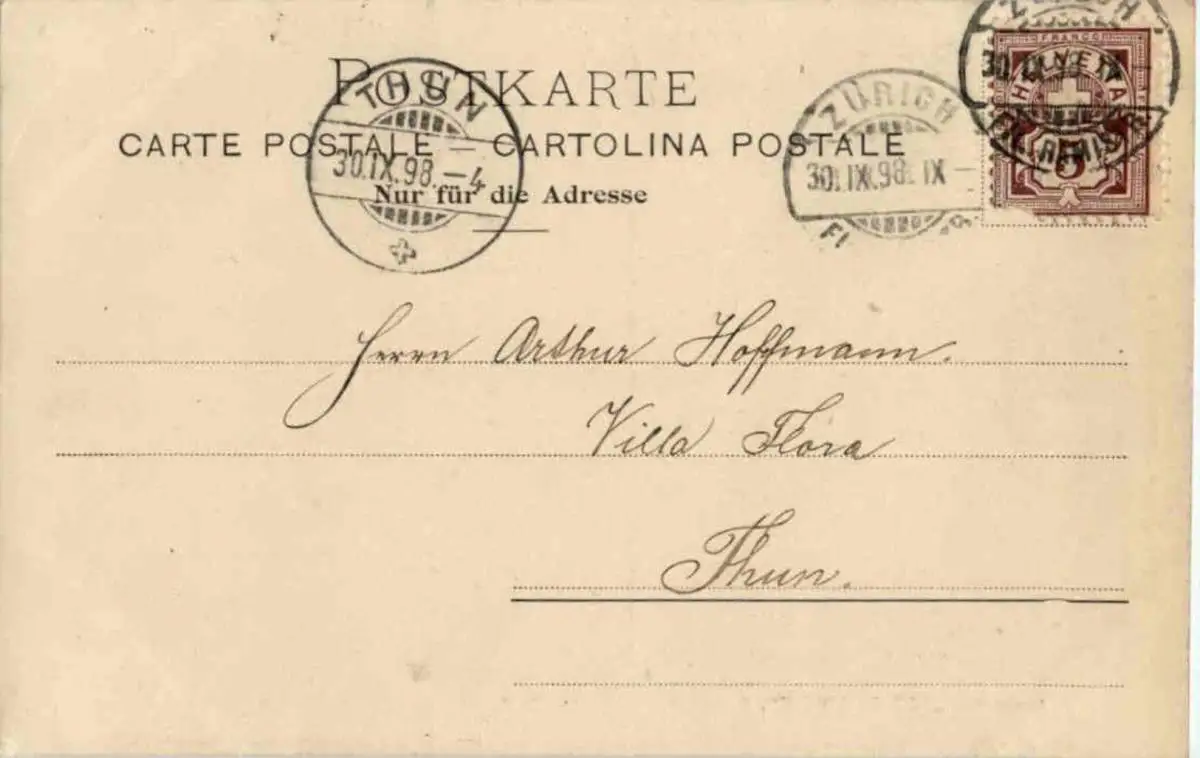 POSTKARTE
CARTE POSTALE — CARTOLINA POSTALE
Nur für die Adresse
THUN
30.IX.98.–4
ZÜRICH
30.IX.98. IX –
ZÜRICH
30.
FRANCO
HELVETIA
5
Herrn Arthur Hoffmann.
Villa Flora
Thun.